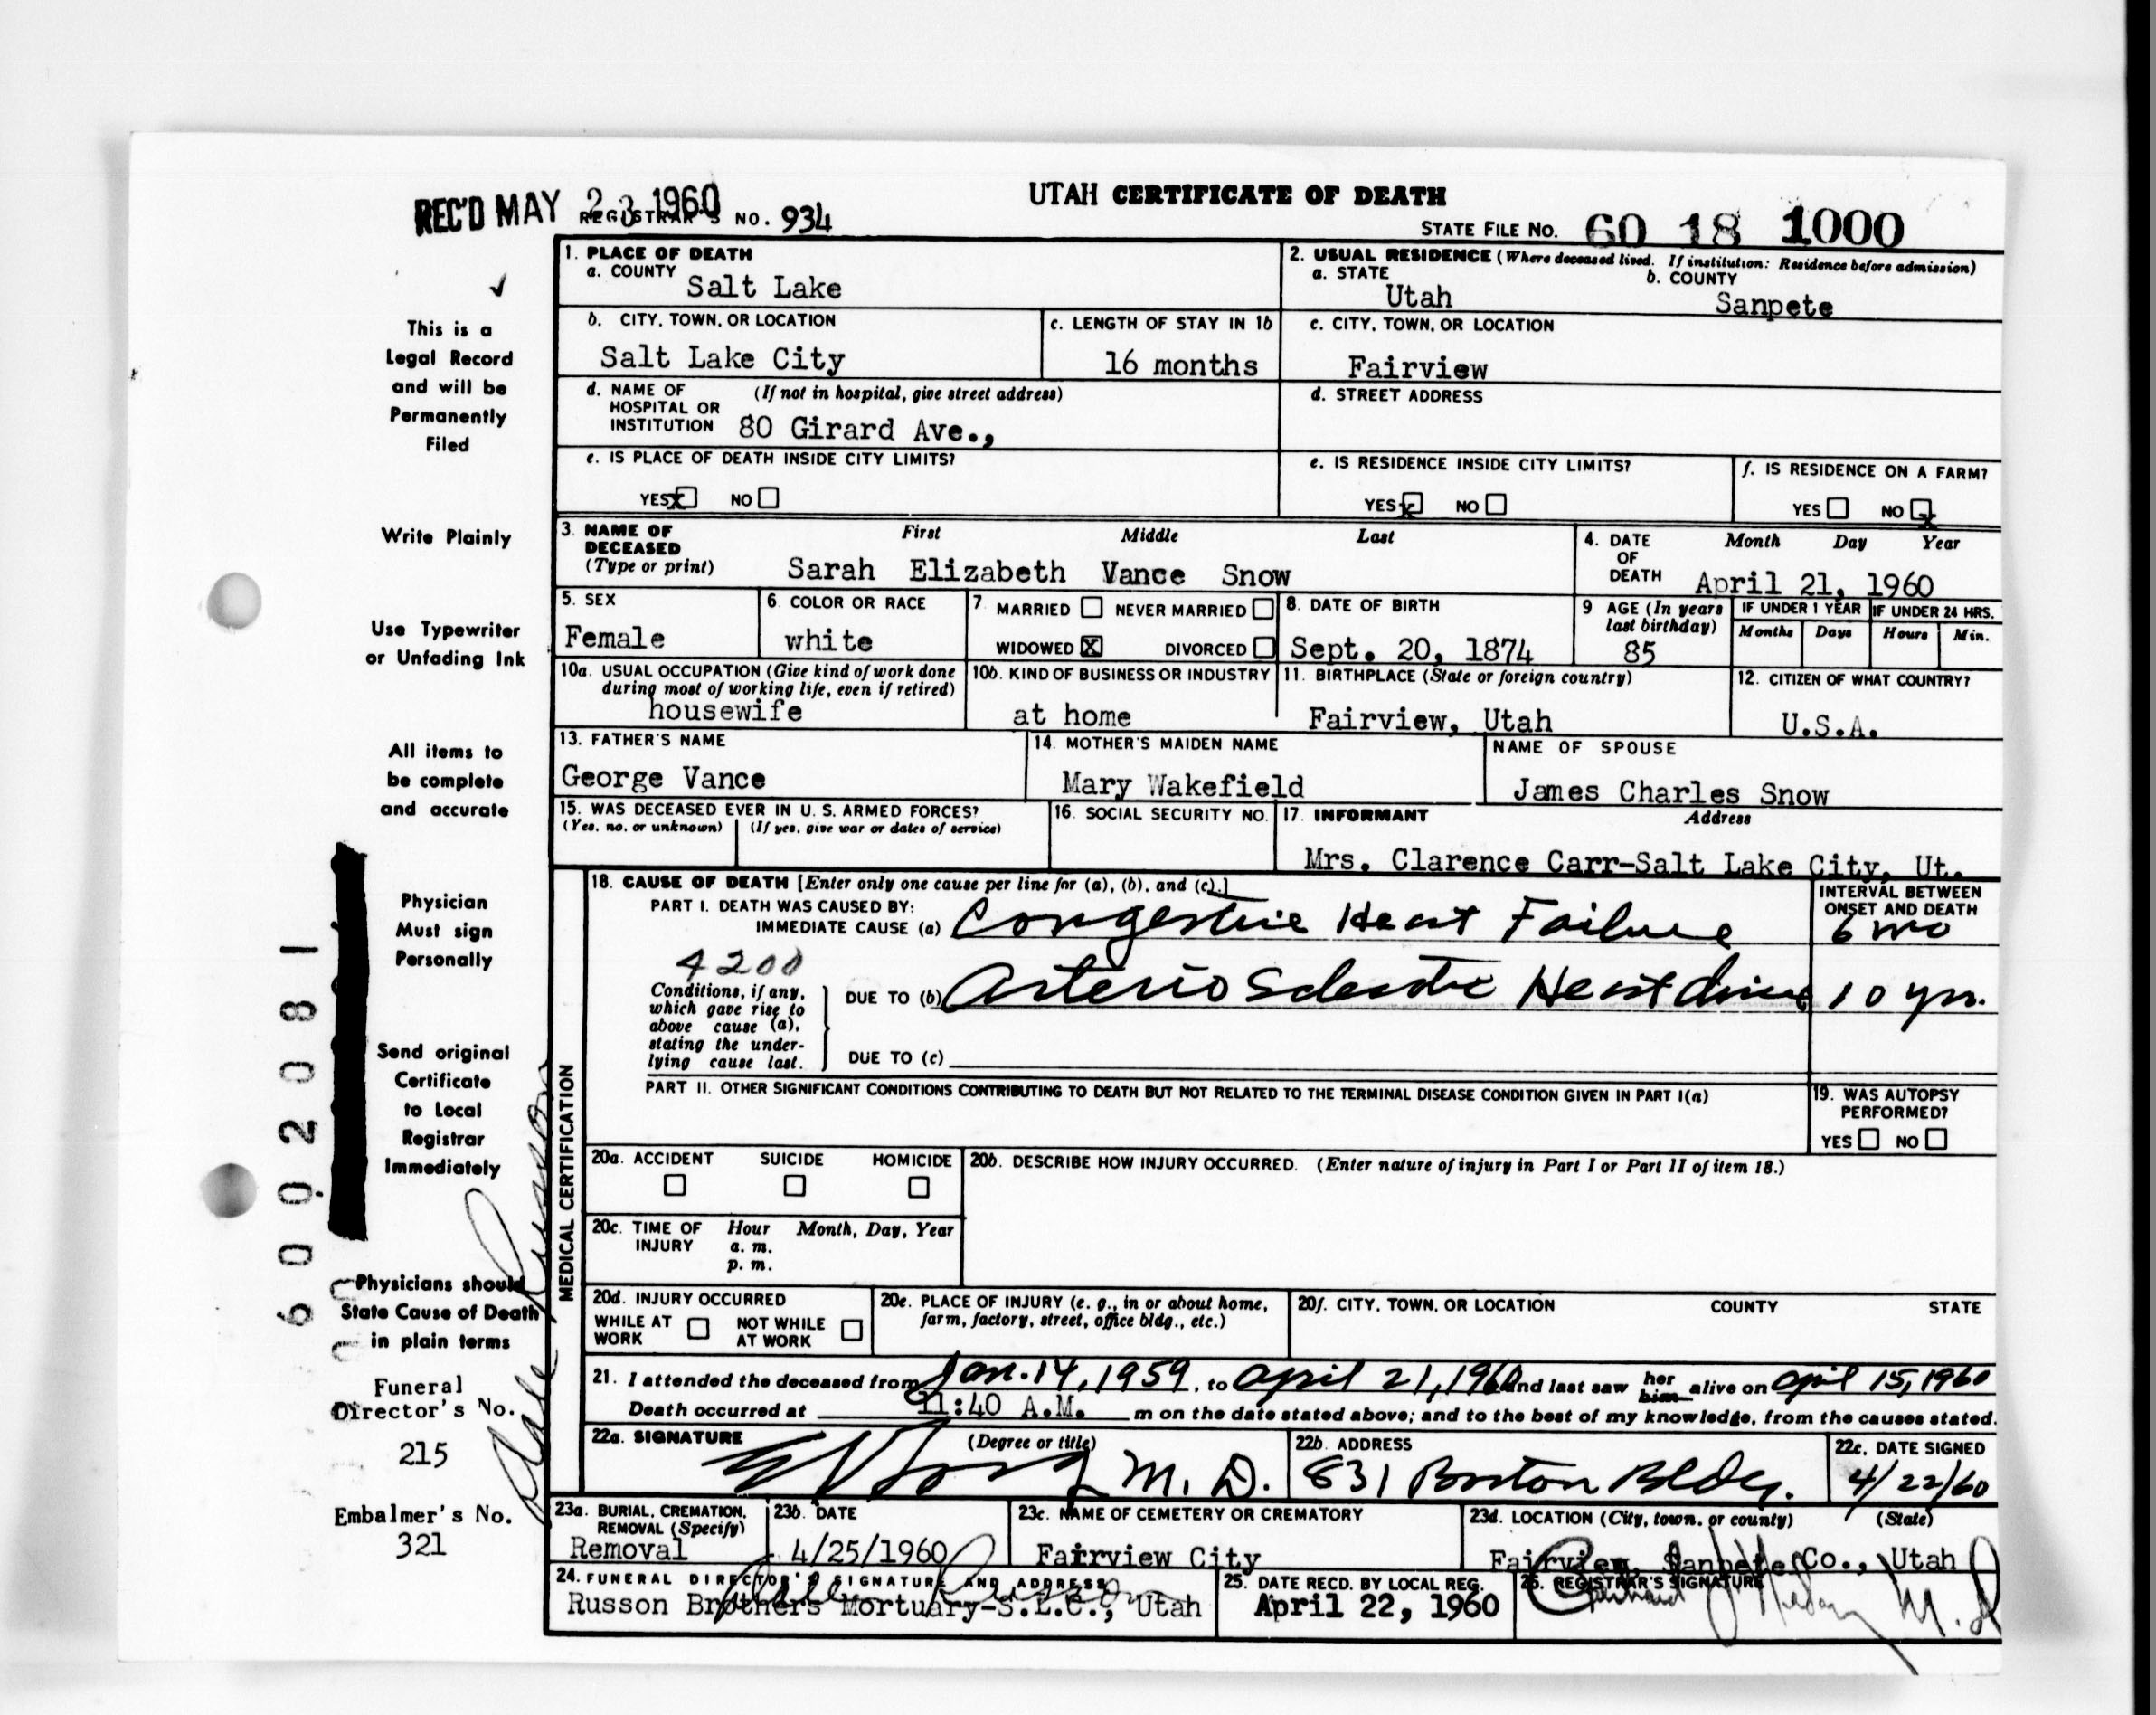 REC'D MAY 23 1960
REGISTRAR'S NO. 934
UTAH CERTIFICATE OF DEATH
STATE FILE No. 60 18 1000
This is a
Legal Record
and will be
Permanently
Filed
Write Plainly
Use Typewriter
or Unfading Ink
All items to
be complete
and accurate
Physician
Must sign
Personally
Send original
Certificate
to Local
Registrar
Immediately
Physicians should
State Cause of Death
in plain terms
Funeral
Director's No.
215
Embalmer's No.
321
6002081
Dale Russon
1. PLACE OF DEATH
a. COUNTY Salt Lake
2. USUAL RESIDENCE (Where deceased lived. If institution: Residence before admission)
a. STATE Utah b. COUNTY Sanpete
b. CITY, TOWN, OR LOCATION
Salt Lake City
c. LENGTH OF STAY IN 1b
16 months
c. CITY, TOWN, OR LOCATION
Fairview
d. NAME OF HOSPITAL OR INSTITUTION (If not in hospital, give street address)
80 Girard Ave.,
d. STREET ADDRESS
e. IS PLACE OF DEATH INSIDE CITY LIMITS?
YES x NO
e. IS RESIDENCE INSIDE CITY LIMITS?
YES x NO
f. IS RESIDENCE ON A FARM?
YES NO x
3. NAME OF DECEASED (Type or print)
First Middle Last
Sarah Elizabeth Vance Snow
4. DATE OF DEATH
Month Day Year
April 21, 1960
5. SEX
Female
6. COLOR OR RACE
white
7. MARRIED NEVER MARRIED
WIDOWED X DIVORCED
8. DATE OF BIRTH
Sept. 20, 1874
9 AGE (In years last birthday)
85
IF UNDER 1 YEAR IF UNDER 24 HRS.
Months Days Hours Min.
10a. USUAL OCCUPATION (Give kind of work done during most of working life, even if retired)
housewife
10b. KIND OF BUSINESS OR INDUSTRY
at home
11. BIRTHPLACE (State or foreign country)
Fairview, Utah
12. CITIZEN OF WHAT COUNTRY?
U.S.A.
13. FATHER'S NAME
George Vance
14. MOTHER'S MAIDEN NAME
Mary Wakefield
NAME OF SPOUSE
James Charles Snow
15. WAS DECEASED EVER IN U. S. ARMED FORCES?
(Yes, no, or unknown) (If yes, give war or dates of service)
16. SOCIAL SECURITY NO.
17. INFORMANT Address
Mrs. Clarence Carr-Salt Lake City, Ut.
MEDICAL CERTIFICATION
18. CAUSE OF DEATH [Enter only one cause per line for (a), (b), and (c).]
INTERVAL BETWEEN ONSET AND DEATH
PART I. DEATH WAS CAUSED BY:
IMMEDIATE CAUSE (a) Congestive Heart Failure 6 mo
4200
Conditions, if any, which gave rise to above cause (a), stating the underlying cause last.
DUE TO (b) Arterio Sclerotic Heart disease 10 yrs.
DUE TO (c)
PART II. OTHER SIGNIFICANT CONDITIONS CONTRIBUTING TO DEATH BUT NOT RELATED TO THE TERMINAL DISEASE CONDITION GIVEN IN PART I(a)
19. WAS AUTOPSY PERFORMED?
YES NO
20a. ACCIDENT SUICIDE HOMICIDE
20b. DESCRIBE HOW INJURY OCCURRED. (Enter nature of injury in Part I or Part II of item 18.)
20c. TIME OF INJURY Hour Month, Day, Year
a. m.
p. m.
20d. INJURY OCCURRED
WHILE AT WORK NOT WHILE AT WORK
20e. PLACE OF INJURY (e. g., in or about home, farm, factory, street, office bldg., etc.)
20f. CITY, TOWN, OR LOCATION COUNTY STATE
21. I attended the deceased from Jan. 14, 1959, to April 21, 1960 and last saw her him alive on April 15, 1960
Death occurred at 11:40 A.M. m on the date stated above; and to the best of my knowledge, from the causes stated.
22a. SIGNATURE (Degree or title)
M. D.
22b. ADDRESS
831 Boston Bldg.
22c. DATE SIGNED
4/22/60
23a. BURIAL, CREMATION, REMOVAL (Specify)
Removal
23b. DATE
4/25/1960
23c. NAME OF CEMETERY OR CREMATORY
Fairview City
23d. LOCATION (City, town, or county) (State)
Fairview, Sanpete Co., Utah
24. FUNERAL DIRECTOR'S SIGNATURE AND ADDRESS
Dale Russon
Russon Brothers Mortuary-S.L.C., Utah
25. DATE RECD. BY LOCAL REG.
April 22, 1960
26. REGISTRAR'S SIGNATURE
M. D.